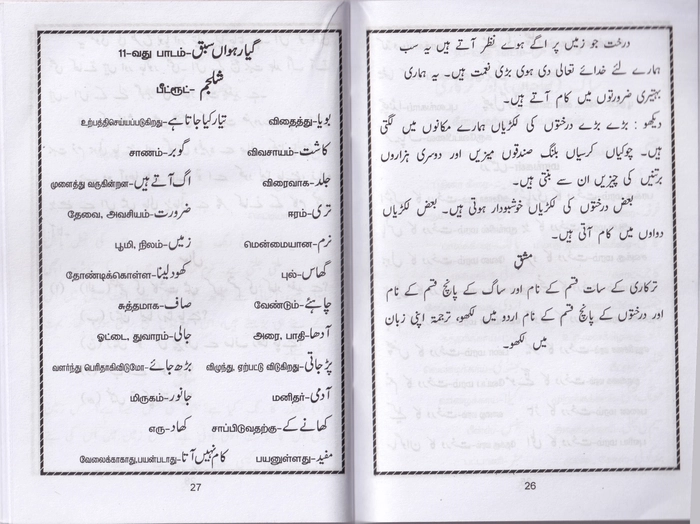 درخت جو زمیں پر اگے ہوے نظر آتے ہیں یہ سب
ہمارے لئے خدائے تعالی دی ہوی بڑی نعمت ہیں۔ یہ ہماری
بہتیری ضرورتوں میں کام آتے ہیں۔
دیکھو : بڑے بڑے درختوں کی لکڑیاں ہمارے مکانوں میں لگتی
ہیں۔ چوکیاں کرسیاں پلنگ صندوقیں میزیں اور دوسری ہزاروں
برتنیں کی چیزیں ان سے بنتی ہیں۔
بعض درختوں کی لکڑیاں خوشبودار ہوتی ہیں۔ بعض لکڑیاں
دواوں میں کام آتی ہیں۔
مشق
ترکاری کے سات قسم کے نام اور ساگ کے پانچ قسم کے نام
اور درختوں کے پانچ قسم کے نام اردو میں لکھو، ترجمۃ اپنی زبان
میں لکھو۔
26
گیارھواں سبق-11-வது பாடம்
شلجم-பீட்ரூட்
بویا-விதைத்து تیار کیا جاتا ہے-உற்பத்திசெய்யப்படுகிறது
کاشت-விவசாயம் گوبر-சாணம்
جلد-விரைவாக اگ آتے ہیں-முளைத்து வருகின்றன
تری-ஈரம் ضرورت-தேவை, அவசியம்
نرم-மென்மையான زمیں-பூமி, நிலம்
گھاس-புல் کھود لینا-தோண்டிக்கொள்ள
چاہئے-வேண்டும் صاف-சுத்தமாக
آدھا-அரை, பாதி جالی-ஓட்டை, துவாரம்
پڑجاتی-விழுந்து, ஏற்பட்டு விடுகிறது بڑھ جائے-வளர்ந்து பெரிதாகிவிடுமோ
آدمی-மனிதர் جانور-மிருகம்
کھانے کے-சாப்பிடுவதற்கு کھاد-எரு
مفید-பயனுள்ளது کام نہیں آتا-வேலைக்காகாது,பயன்படாது
27